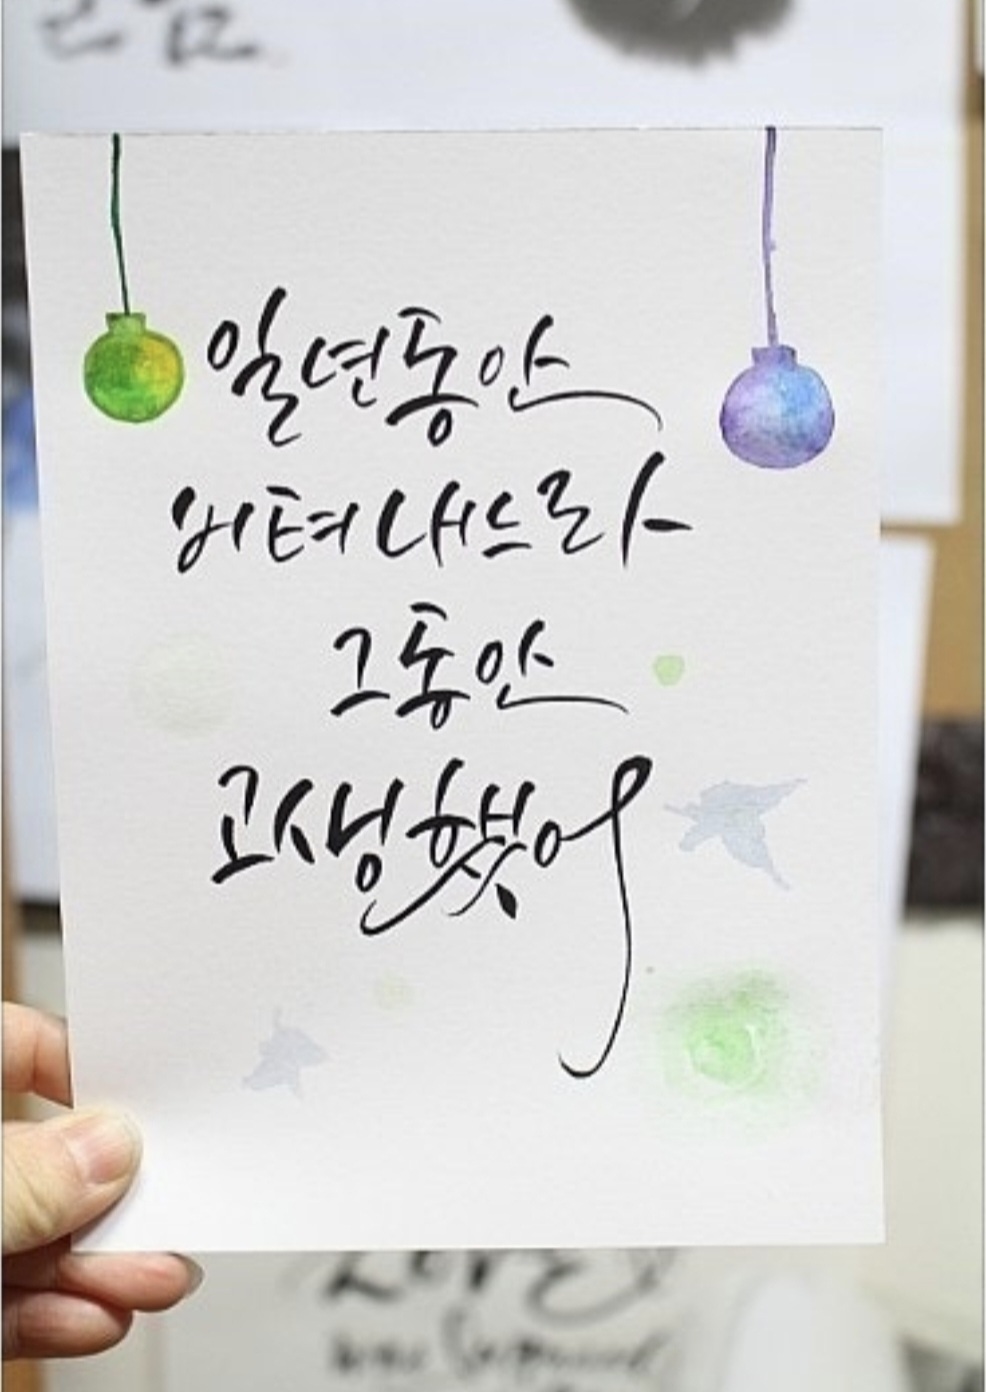 일년동안
버텨내느라
그동안
고생했어